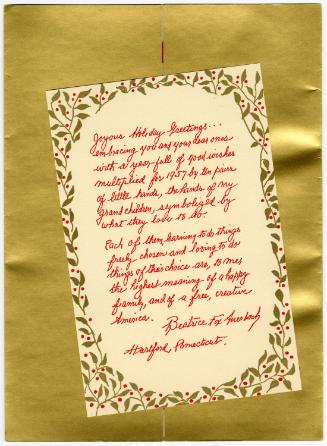 Joyous Holiday Greetings...
embracing you and your dear ones
with a year full of good wishes
multiplied for 1957 by ten pairs
of little hands, the hands of my
grandchildren, symbolized by
what they love to do.
Each of them learning to do things
freely chosen and loving to do
things of their choice are, to me,
the highest meaning of a happy
family, and of a free, creative
America.
Beatrice Fox Auerbach
Hartford, Connecticut.